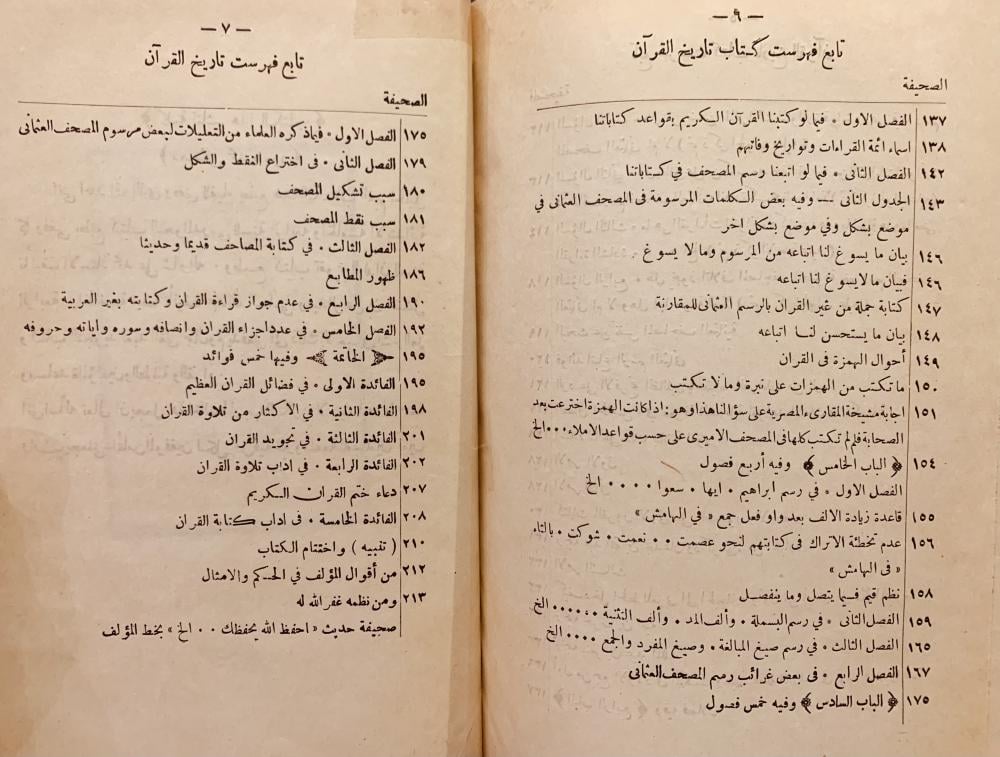 — ٦ —
تابع فهرست كتاب تاريخ القرآن
الصحيفة
١٣٧ الفصل الاول ٠ فيما لو كتبنا القرآن الكريم بقواعد كتاباتنا
١٣٨ اسماء ائمة القراءات وتواريخ وفاتهم
١٤٢ الفصل الثانى ٠ فيما لو اتبعنا رسم المصحف في كتاباتنا
١٤٣ الجدول الثانى — وفيه بعض الكلمات المرسومة فى المصحف العثمانى في
موضع بشكل وفي موضع بشكل اخر
١٤٦ بيان ما يسوغ لنا اتباعه من المرسوم وما لا يسوغ
١٤٦ فبيان ما لا يسوغ لنا اتباعه
١٤٧ كتابة جملة من غير القران بالرسم العثمانى للمقارنة
١٤٨ بيان ما يستحسن لنا اتباعه
١٤٩ أحوال الهمزة فى القران
١٥٠ ما تكتب من الهمزات على نبرة وما لا تكتب
١٥١ اجابة مشيخة المقارىء المصرية على سؤالنا هذا وهو : اذا كانت الهمزة اخترعت بعد
الصحابة فلم لم تكتب كلها فى المصحف الاميرى على حسب قواعد الاملاء ٠٠٠ الخ
١٥٤ ﴿ الباب الخامس ﴾ وفيه أربع فصول
الفصل الاول ٠ في رسم ابراهيم ٠ ايها ٠ سعوا ٠٠٠٠ الخ
١٥٥ قاعدة زيادة الالف بعد واو فعل جمع « في الهامش »
١٥٦ عدم تخطئة الاتراك فى كتابتهم لنحو عصمت ٠٠ نعمت ٠ شوكت ٠ بالتاء
« فى الهامش »
١٥٨ نظم قيم فيما يتصل وما ينفصل
١٥٩ الفصل الثانى ٠ في رسم البسملة ٠ وألف المد ٠ وألف التثنية ٠٠٠٠٠ الخ
١٦٥ الفصل الثالث ٠ في رسم صيغ المبالغة ٠ وصيغ المفرد والجمع ٠٠٠٠ الخ
١٦٧ الفصل الرابع ٠ فى بعض غرائب رسم المصحف العثمانى
١٧٥ ﴿ الباب السادس ﴾ وفيه خمس فصول
— ٧ —
تابع فهرست تاريخ القرآن
الصحيفة
١٧٥ الفصل الاول ٠ فيما ذكره العلماء من التعليلات لبعض مرسوم المصحف العثمانى
١٧٩ الفصل الثانى ٠ فى اختراع النقط والشكل
١٨٠ سبب تشكيل المصحف
١٨١ سبب نقط المصحف
١٨٢ الفصل الثالث ٠ في كتابة المصاحف قديما وحديثا
١٨٦ ظهور المطابع
١٩٠ الفصل الرابع ٠ في عدم جواز قراءة القران وكتابته بغير العربية
١٩٢ الفصل الخامس ٠ في عدد اجزاء القران وانصافه وسوره واياته وحروفه
١٩٥ ﴿ الخاتمة ﴾ وفيها خمس فوائد
١٩٥ الفائدة الاولى ٠ في فضائل القران العظيم
١٩٨ الفائدة الثانية ٠ في الاكثار من تلاوة القران
٢٠١ الفائدة الثالثة ٠ في تجويد القران
٢٠٢ الفائدة الرابعة ٠ في اداب تلاوة القران
٢٠٧ دعاء ختم القران الكريم
٢٠٨ الفائدة الخامسة ٠ فى اداب كتابة القران
٢١٠ ( تنبيه ) واختتام الكتاب
٢١٢ من أقوال المؤلف في الحكم والامثال
٢١٣ ومن نظمه غفر الله له
صحيفة حديث « احفظ الله يحفظك ٠٠ الخ » بخط المؤلف